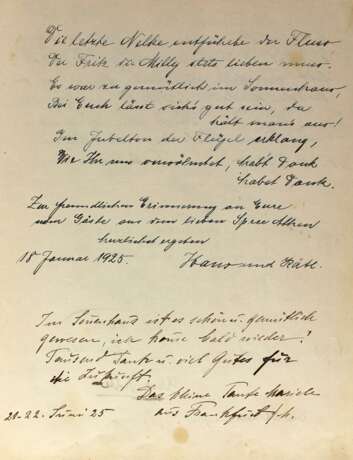 Die letzte Nelke entführte der Fluss
Der Fritz die Milly stets lieben muss.
Es war zu gemütlich im Sonnenhaus,
Bei Euch lässt sich's gut sein, da
hält man's aus!
Im Jubelton der Flügel erklang,
Wie Ihr uns verwöhntet, habt Dank
habet Dank.
Zur freundlichen Erinnerung an Eure
Gäste aus dem lieben Spree Athen
herzlichst ergeben
18 Januar 1925. Hans und Käte.
Im Sonnenhaus ist es schön u. gemütlich
gewesen, ich komme bald wieder!
Tausend Dank u. viel Gutes für
die Zukunft.
Das kleine Tante Mariele
21-22. Juni 25 aus Frankfurt